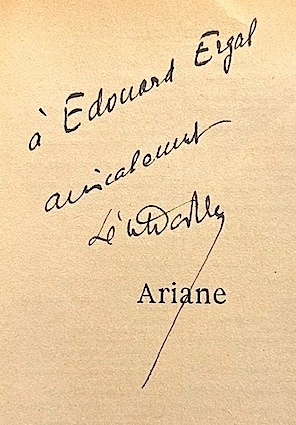 à Edouard Ergal
amicalement
Ariane